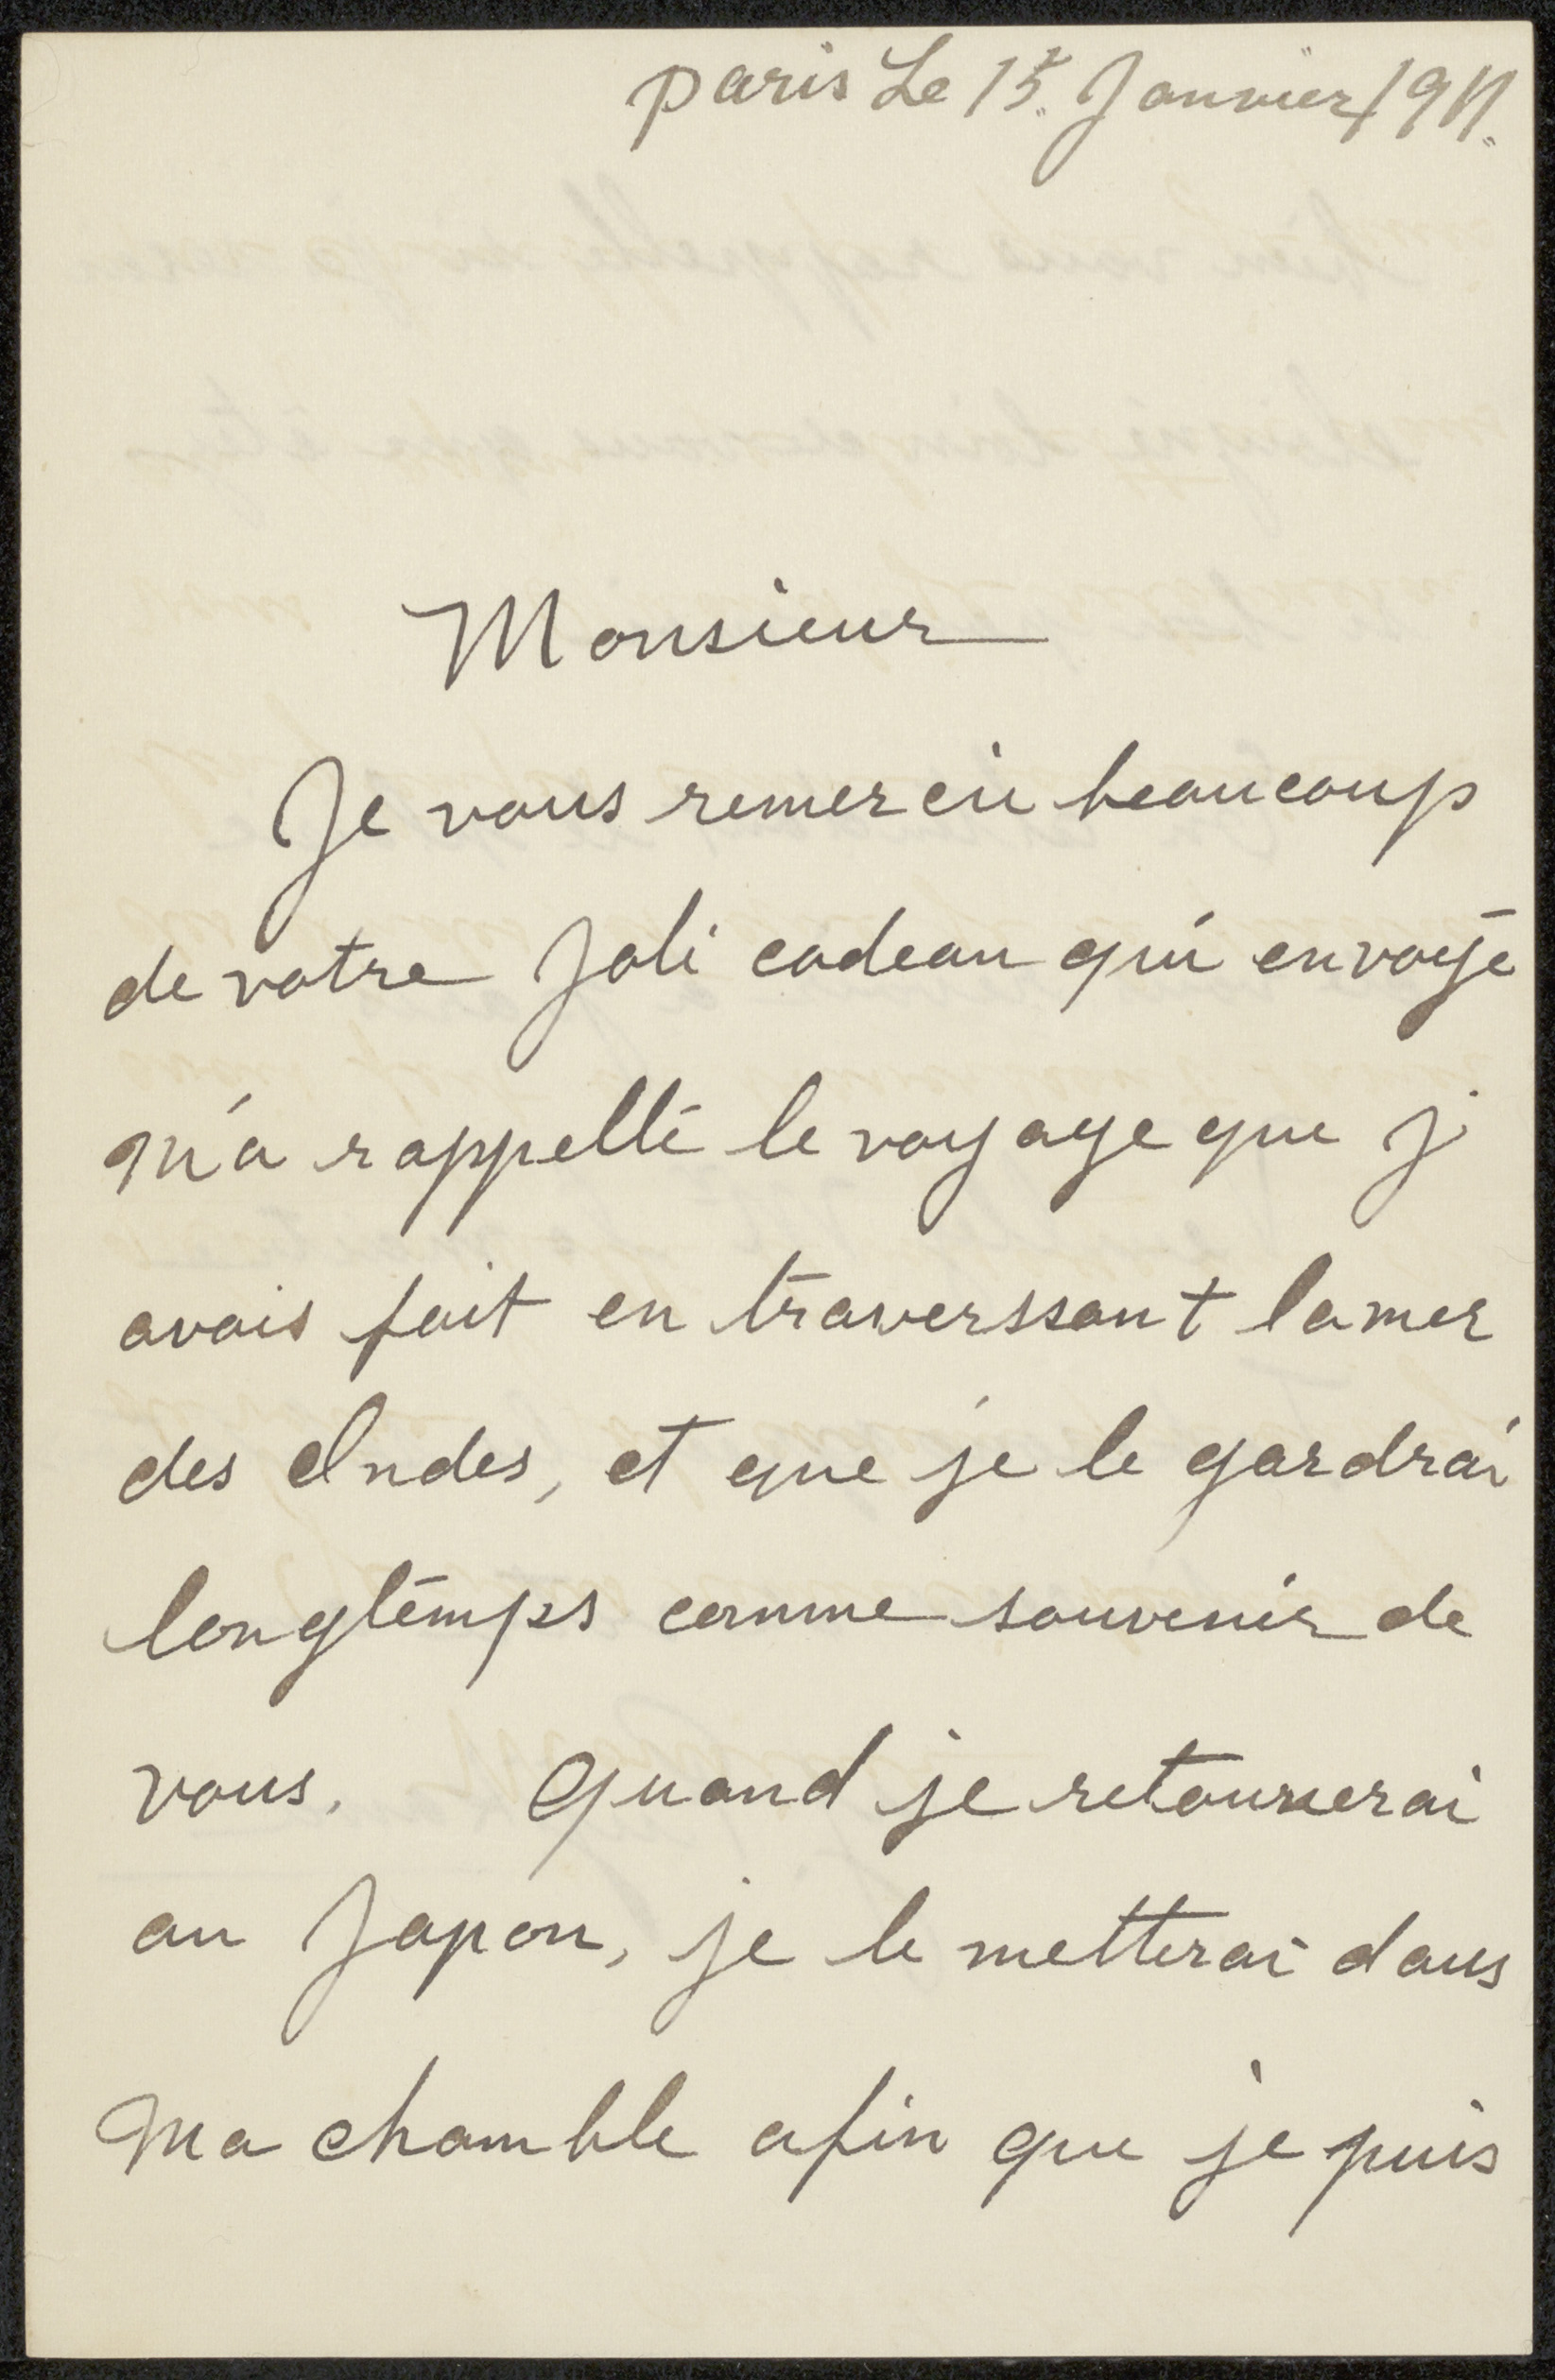 Paris Le 15. Janvier 1911.
Monsieur
Je vous remercie beaucoup
de votre Joli cadeau qui envoyé
m'a rappellé le voyage que j'
avais fait en traverssant la mer
des Indes, et que je le gardrai
longtemps comme souvenir de
vous. Quand je retournerai
au Japon, je le metterai dans
Ma chamble afin que je puis